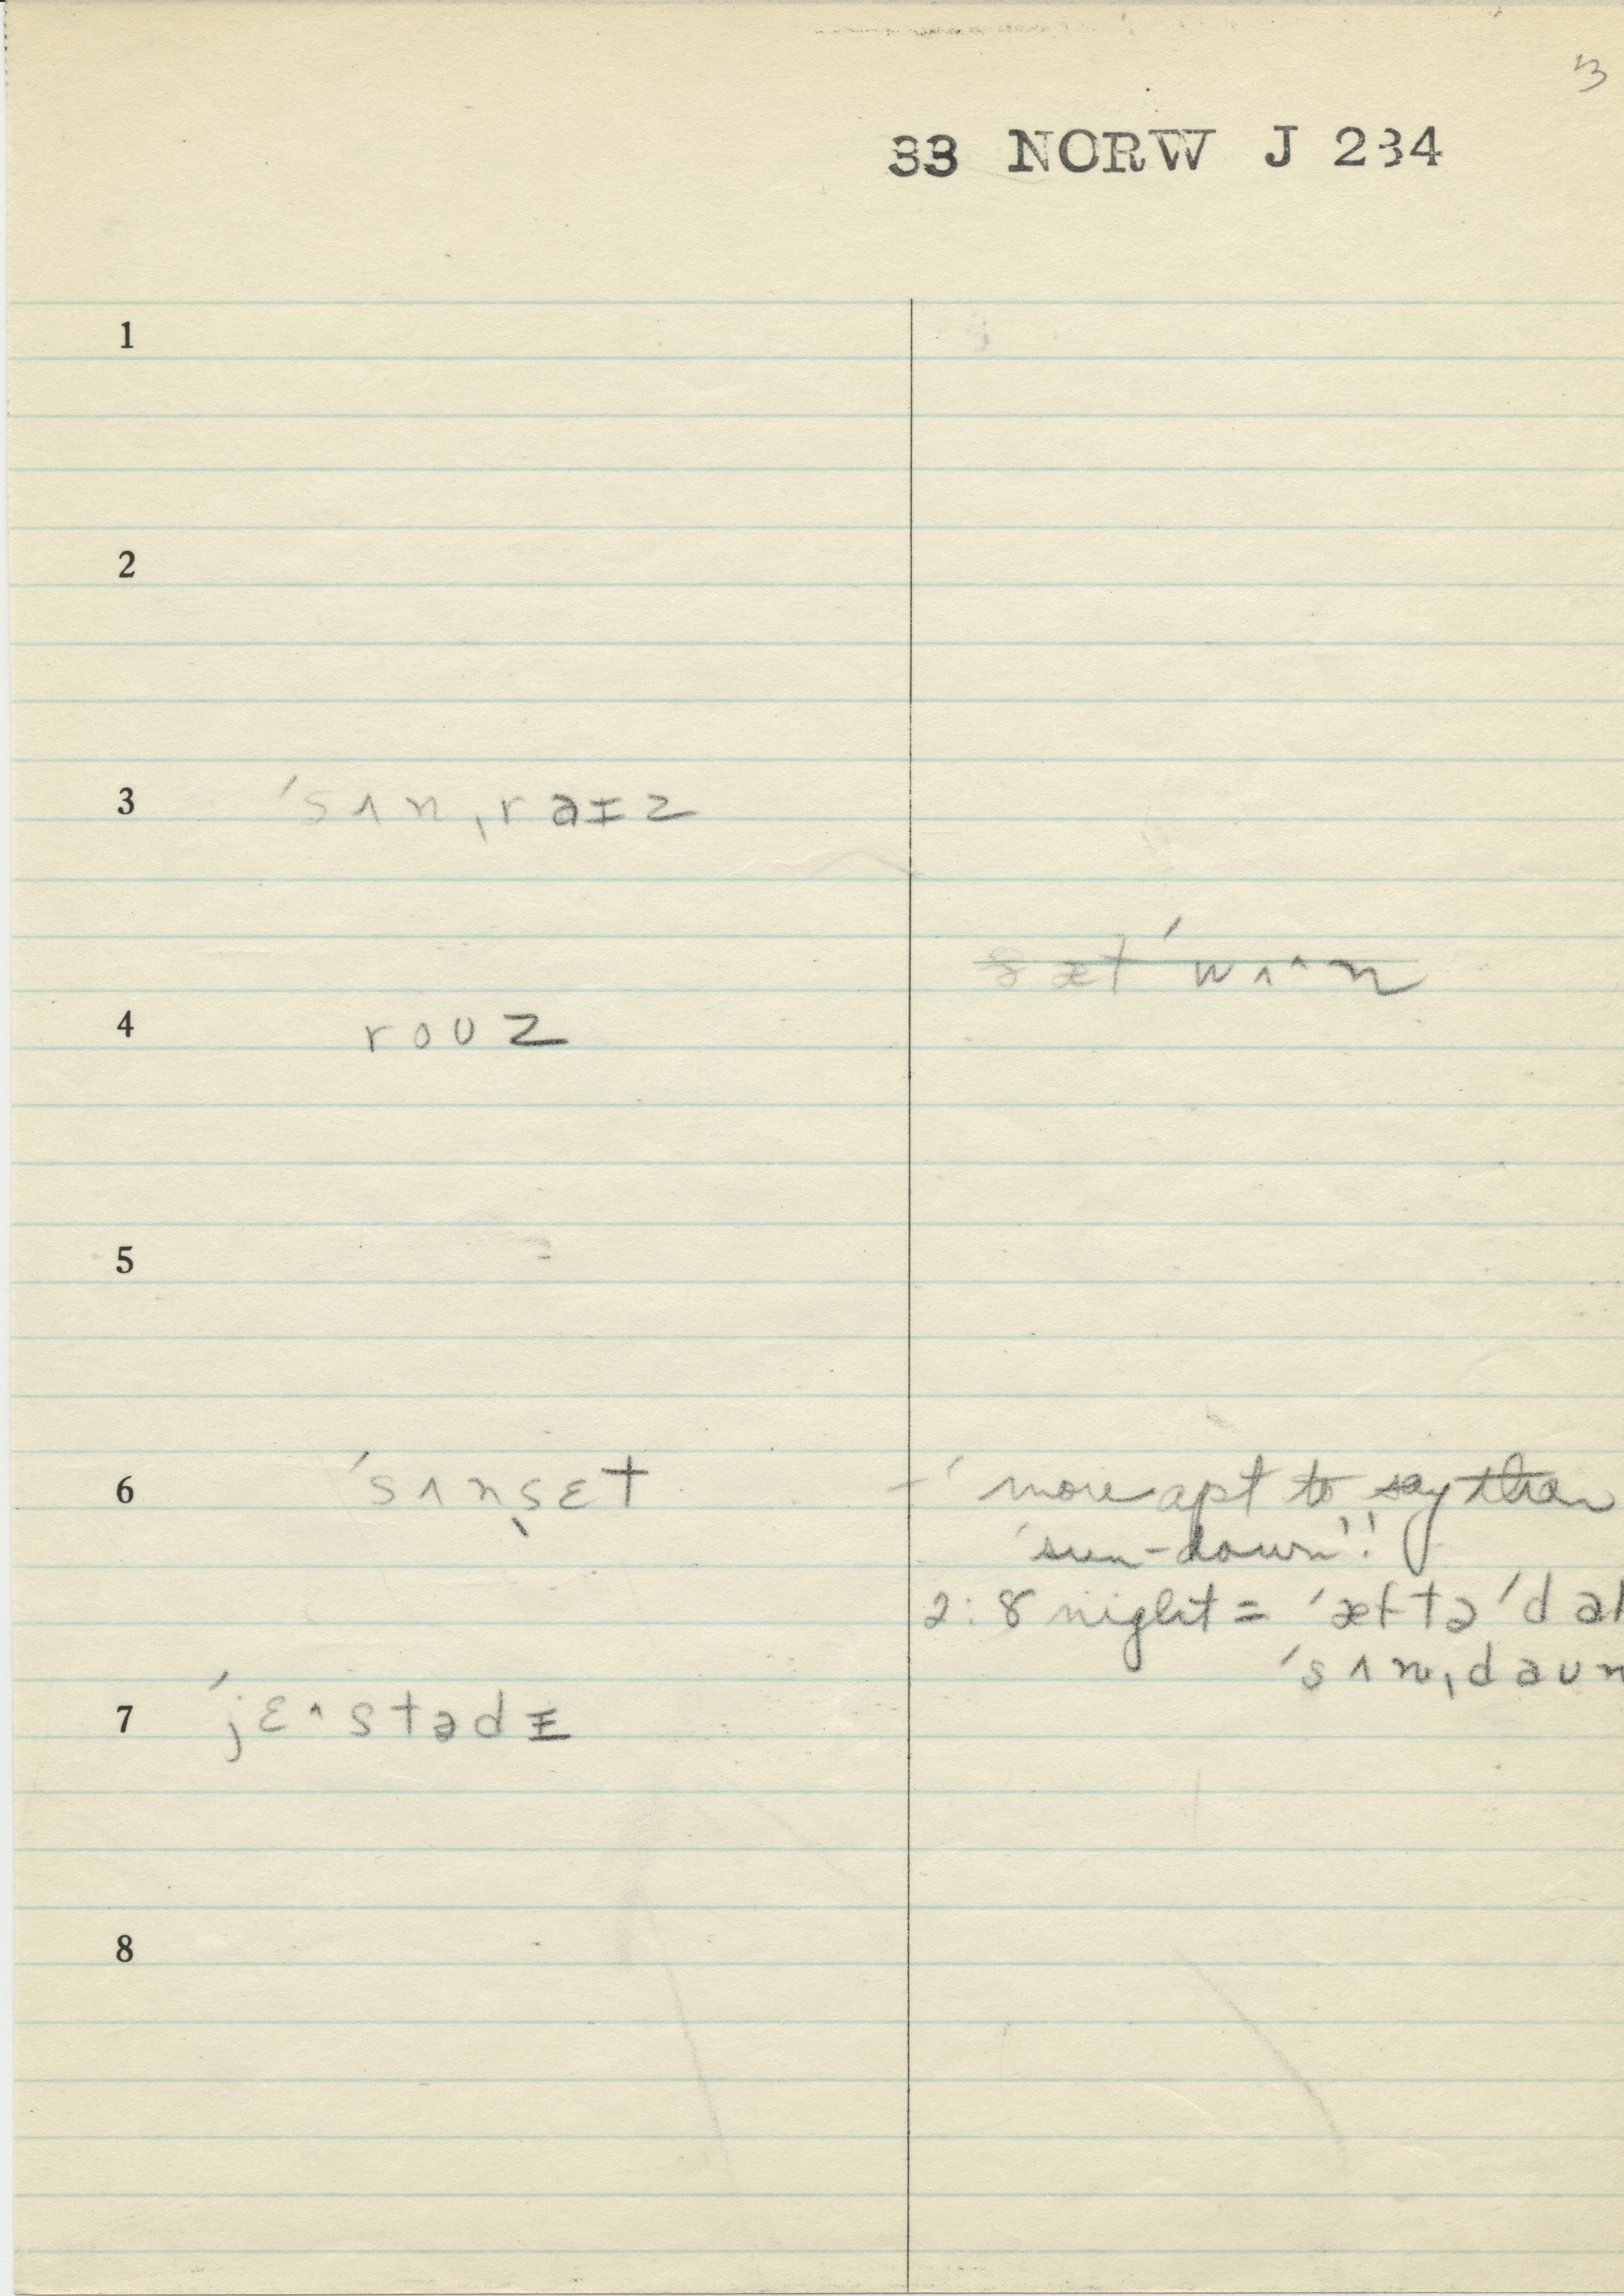 3
33 NORW J 234
1
2
3 ˈsʌnˌraɪz
ðætˈwʌ^n
4 roʊz
5
6 ˈsʌnˌsɛt - ' more apt to say than
'sun-down'!
2:8 night = ˈæftəˈdɑ
ˈsʌnˌdaʊn
7 ˈjɛ^stədɪ
8